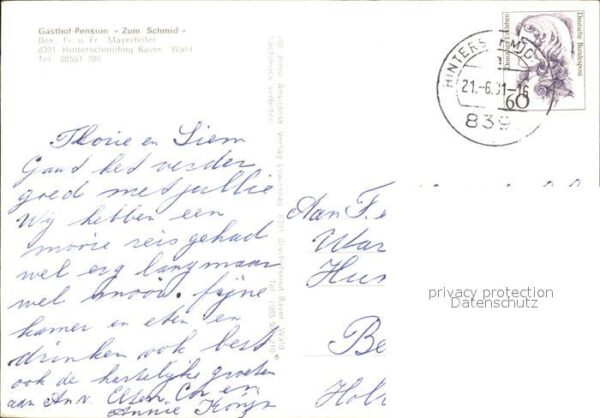 Gasthof-Pension »Zum Schmid«
Bes. Fr. u Fr. Mayerhofer
8391 Hinterschmiding Bayer. Wald
Tel. 08551
HINTERSCHMIDING
21.-6.91-16
839
60
Deutsche Bundespost
Florie en Siem
Gaat het verder
goed met jullie
Wij hebben een
mooie reis gehad
wel erg lang maar
wel mooi. fijne
kamer en eten en
drinken ook best
ook de hartelijke groeten
aan An v. Cor en
Annie
Aan F.
War
Hun
Be
Hol
privacy protection
Datenschutz